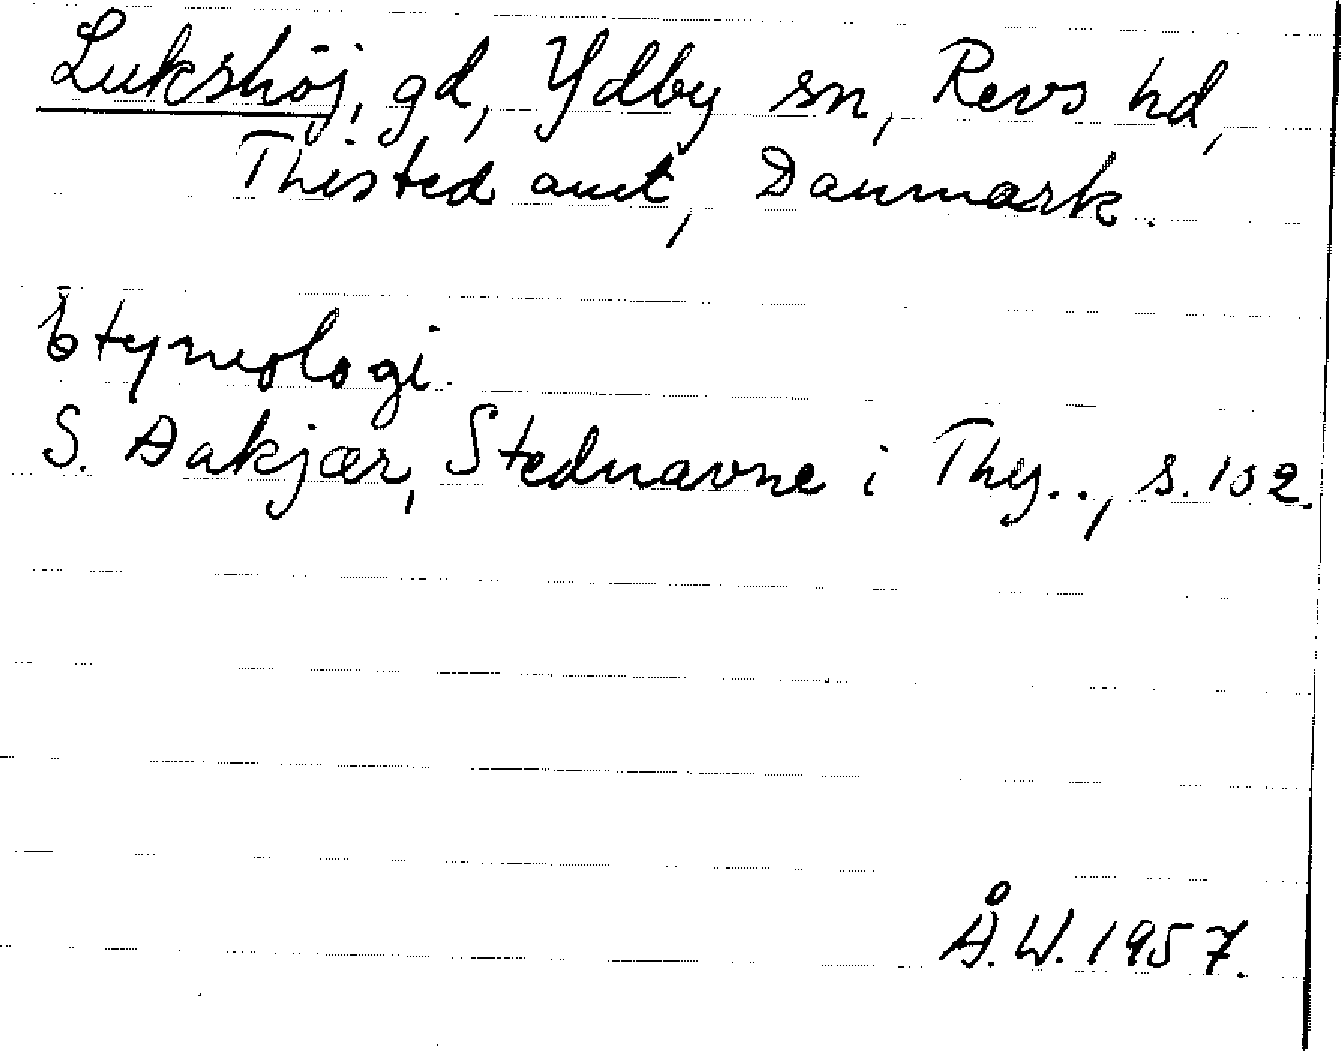 Lukshöj, gd, Ydby sn, Revs hd,
Thisted amt, Danmark.
Etymologi.
S. Aakjær, Stednavne i Thy.., s. 102.
Å.W. 1957.